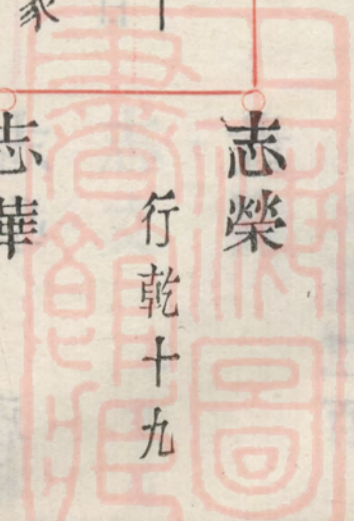 志榮
行乾十九
志華